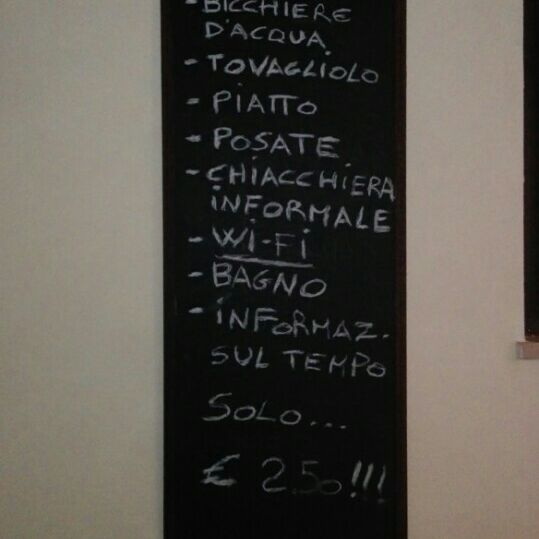 - BICCHIERE
D'ACQUA
- TOVAGLIOLO
- PIATTO
- POSATE
- CHIACCHIERA
INFORMALE
- Wi-Fi
- BAGNO
- INFORMAZ.
SUL TEMPO
SOLO...
€ 2.50!!!